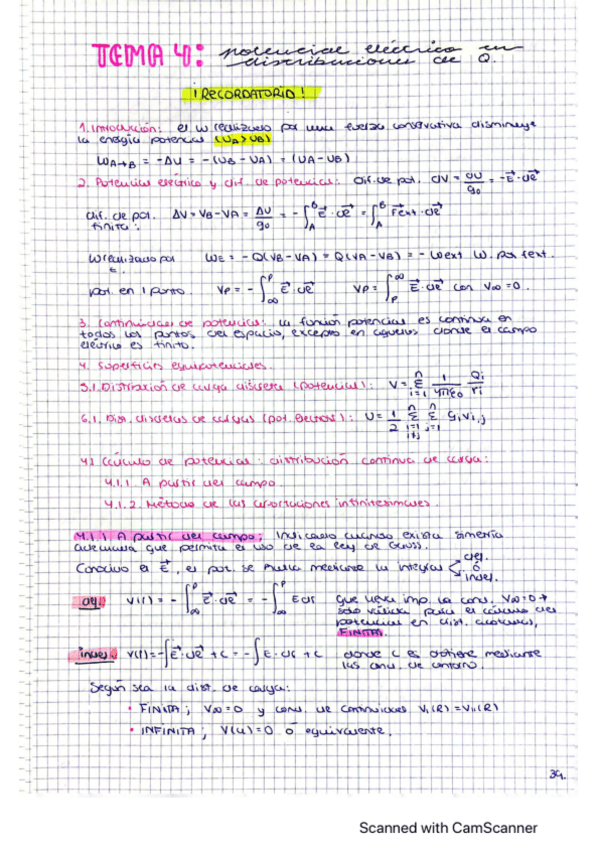 TEMA 4: potencial eléctrico en
distribuciones de Q.
¡RECORDATORIO!
1. Introducción: el W realizado por una fuerza conservativa disminuye
la energía potencial (UA > UB)
WA→B = -ΔU = -(UB - UA) = (UA - UB)
2. Potencial eléctrico y dif. de potencial: Dif. de pot. dV = dU/q0 = -E⃗·dℓ⃗
dif. de pot. finita: ΔV = VB - VA = ΔU/q0 = -∫_A^B E⃗·dℓ⃗ = ∫_A^B F⃗ext·dℓ⃗
W realizado por E. WE = -Q(VB - VA) = Q(VA - VB) = -Wext W. por fext.
pot. en 1 punto. Vp = -∫_∞^P E⃗·dℓ⃗ Vp = ∫_P^∞ E⃗·dℓ⃗ con V∞ = 0.
3. Continuidad de potencial: la función potencial es continua en
todos los puntos del espacio, excepto en aquellos donde el campo
eléctrico es finito.
4. Superficies equipotenciales.
5.1. Distribución de carga discreta (potencial): V = Σ_{i=1}^n 1/4πε0 Qi/ri
6.1. Dist. discretas de cargas (pot. electrost.): U = 1/2 Σ_{i=1}^n Σ_{j=1}^n qi Vi,j
i≠j
4.1 Cálculo de potencial: distribución continua de carga:
4.1.1. A partir del campo.
4.1.2. Método de las aportaciones infinitesimales.
4.1.1. A partir del campo; Indicado cuando exista simetría
adecuada que permita el uso de la ley de Gauss.
Conocido el E⃗, el pot. se halla mediante la integral def. ó indef.
def. V(r) = -∫_∞^P E⃗·dℓ⃗ = -∫_∞^P Edr que lleva imp. la cond. V∞=0 →
solo válida para el cálculo del
potencial en dist. acotadas,
FINITAS.
indef. V(r) = -∫E⃗·dℓ⃗ + C = -∫E·dr + C donde C es obtiene mediante
las cond. de contorno.
Según sea la dist. de carga:
• FINITA; V∞=0 y cond. de continuidad VI(R) = VII(R)
• INFINITA; V(a)=0 ó equivalente.
34.
Scanned with CamScanner